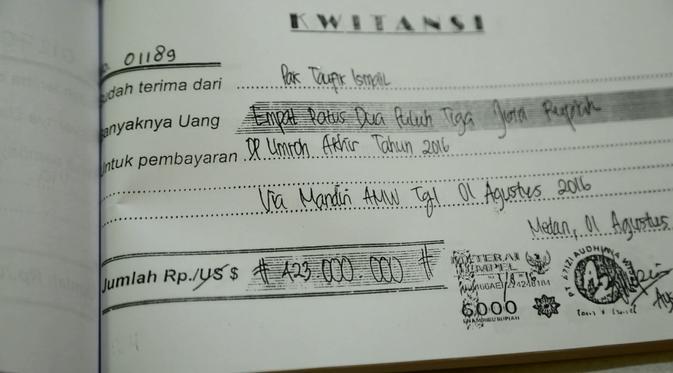 KWITANSI
No. 01189
Sudah terima dari Pak Taufik Ismail
Banyaknya Uang Empat Ratus Dua Puluh Tiga Juta Rupiah
Untuk pembayaran DP Umroh Akhir Tahun 2016
Via Mandiri AMW Tgl 01 Agustus 2016
Medan, 01 Agustus
Jumlah Rp./US $ # 423.000.000 #
METERAI
TEMPEL
6000
ENAM RIBU RUPIAH